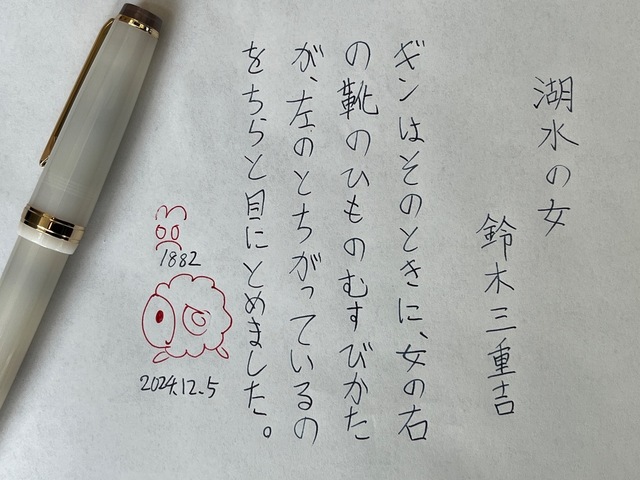 湖水の女
鈴木三重吉
ギンはそのときに、女の右
の靴のひものむすびかた
が、左のとちがっているの
をちらと目にとめました。
1882
2024.12.5